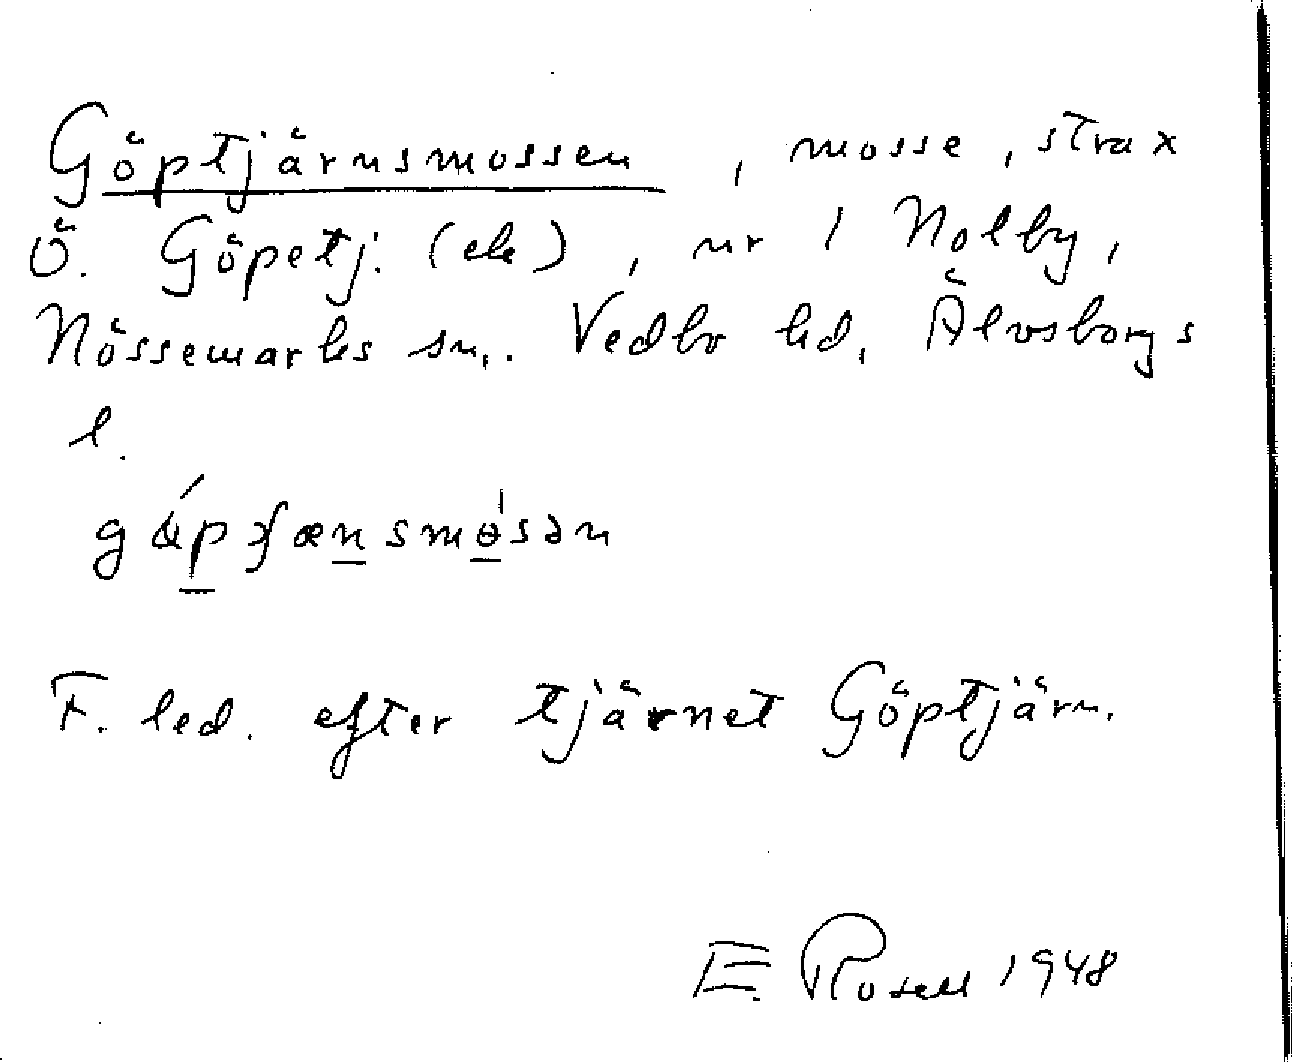 Göptjärnsmossen, mosse, strax
Ö. Göpetj. (ek), nr 1 Nolby,
Nössemarks sn. Vedbo hd. Älvsborgs
l.
F. led. efter tjärnet Göptjärn.
E. Rosell 1948